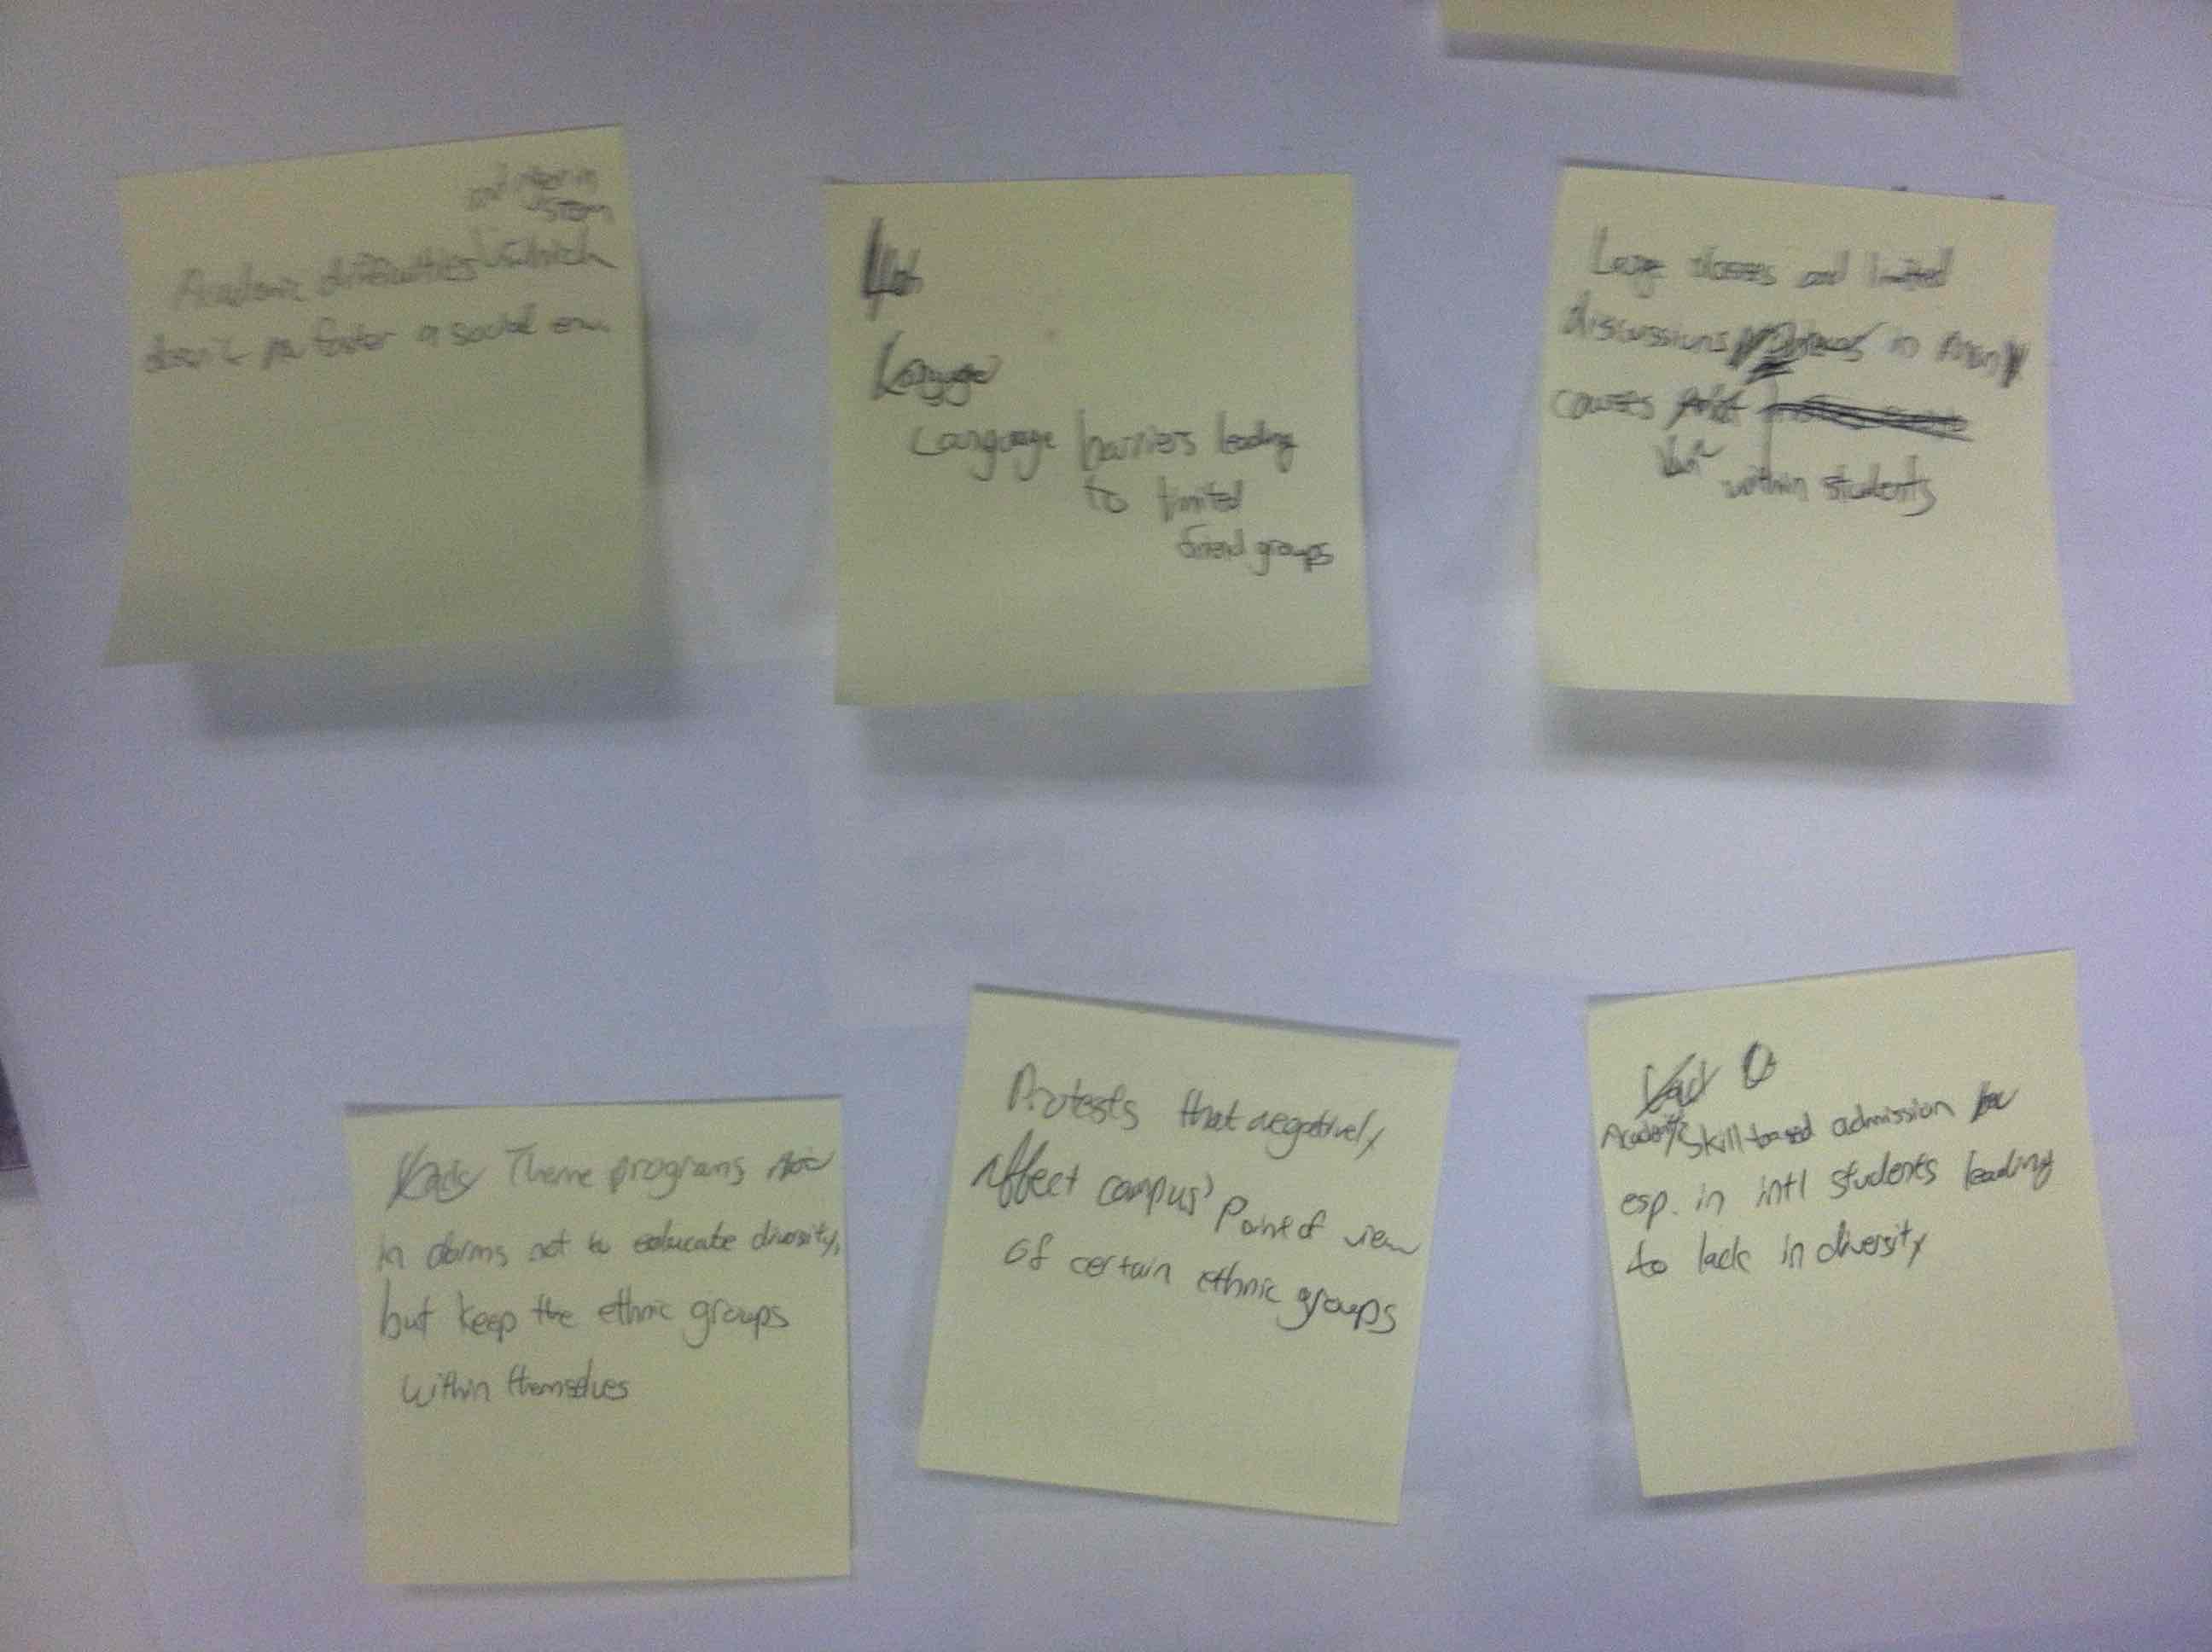 in
STEM
Academic difficulties which
doesn't foster a social env.
Language
Language barriers leading
to limited
friend groups
Large classes and limited
discussions in many
courses
within students
Theme programs
in dorms not to educate diversity,
but keep the ethnic groups
within themselves
Protests that negatively
affect campus' Point of view
of certain ethnic groups
Lack
Academic skill based admission
esp. in int'l students leading
to lack in diversity